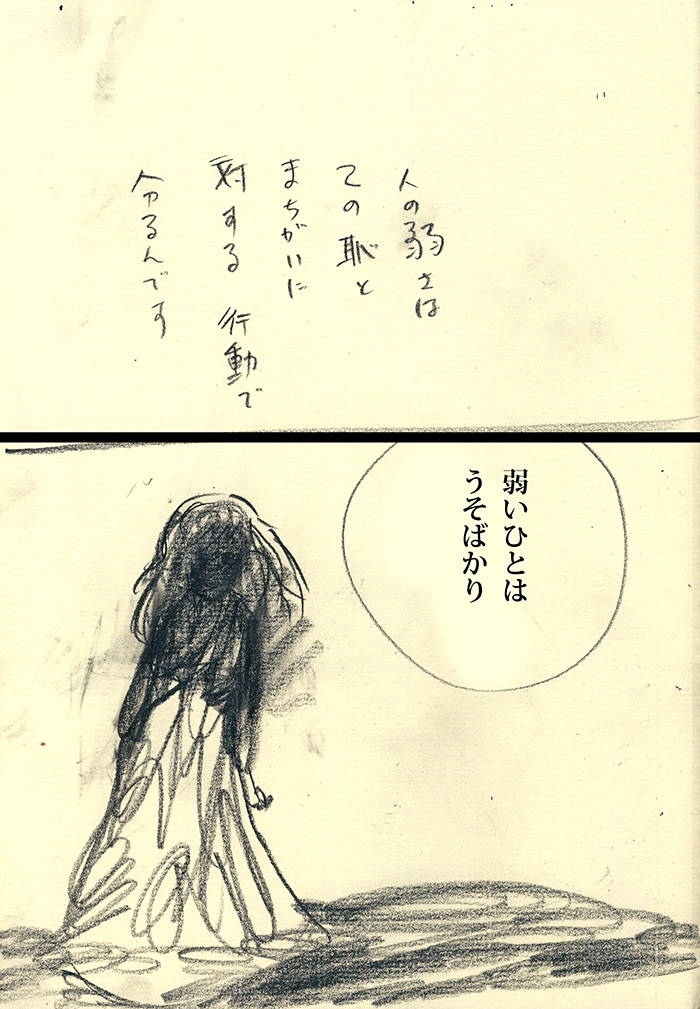 人の弱さは
ての恥と
まちがいに
対する 行動で
分るんです
弱いひとは
うそばかり